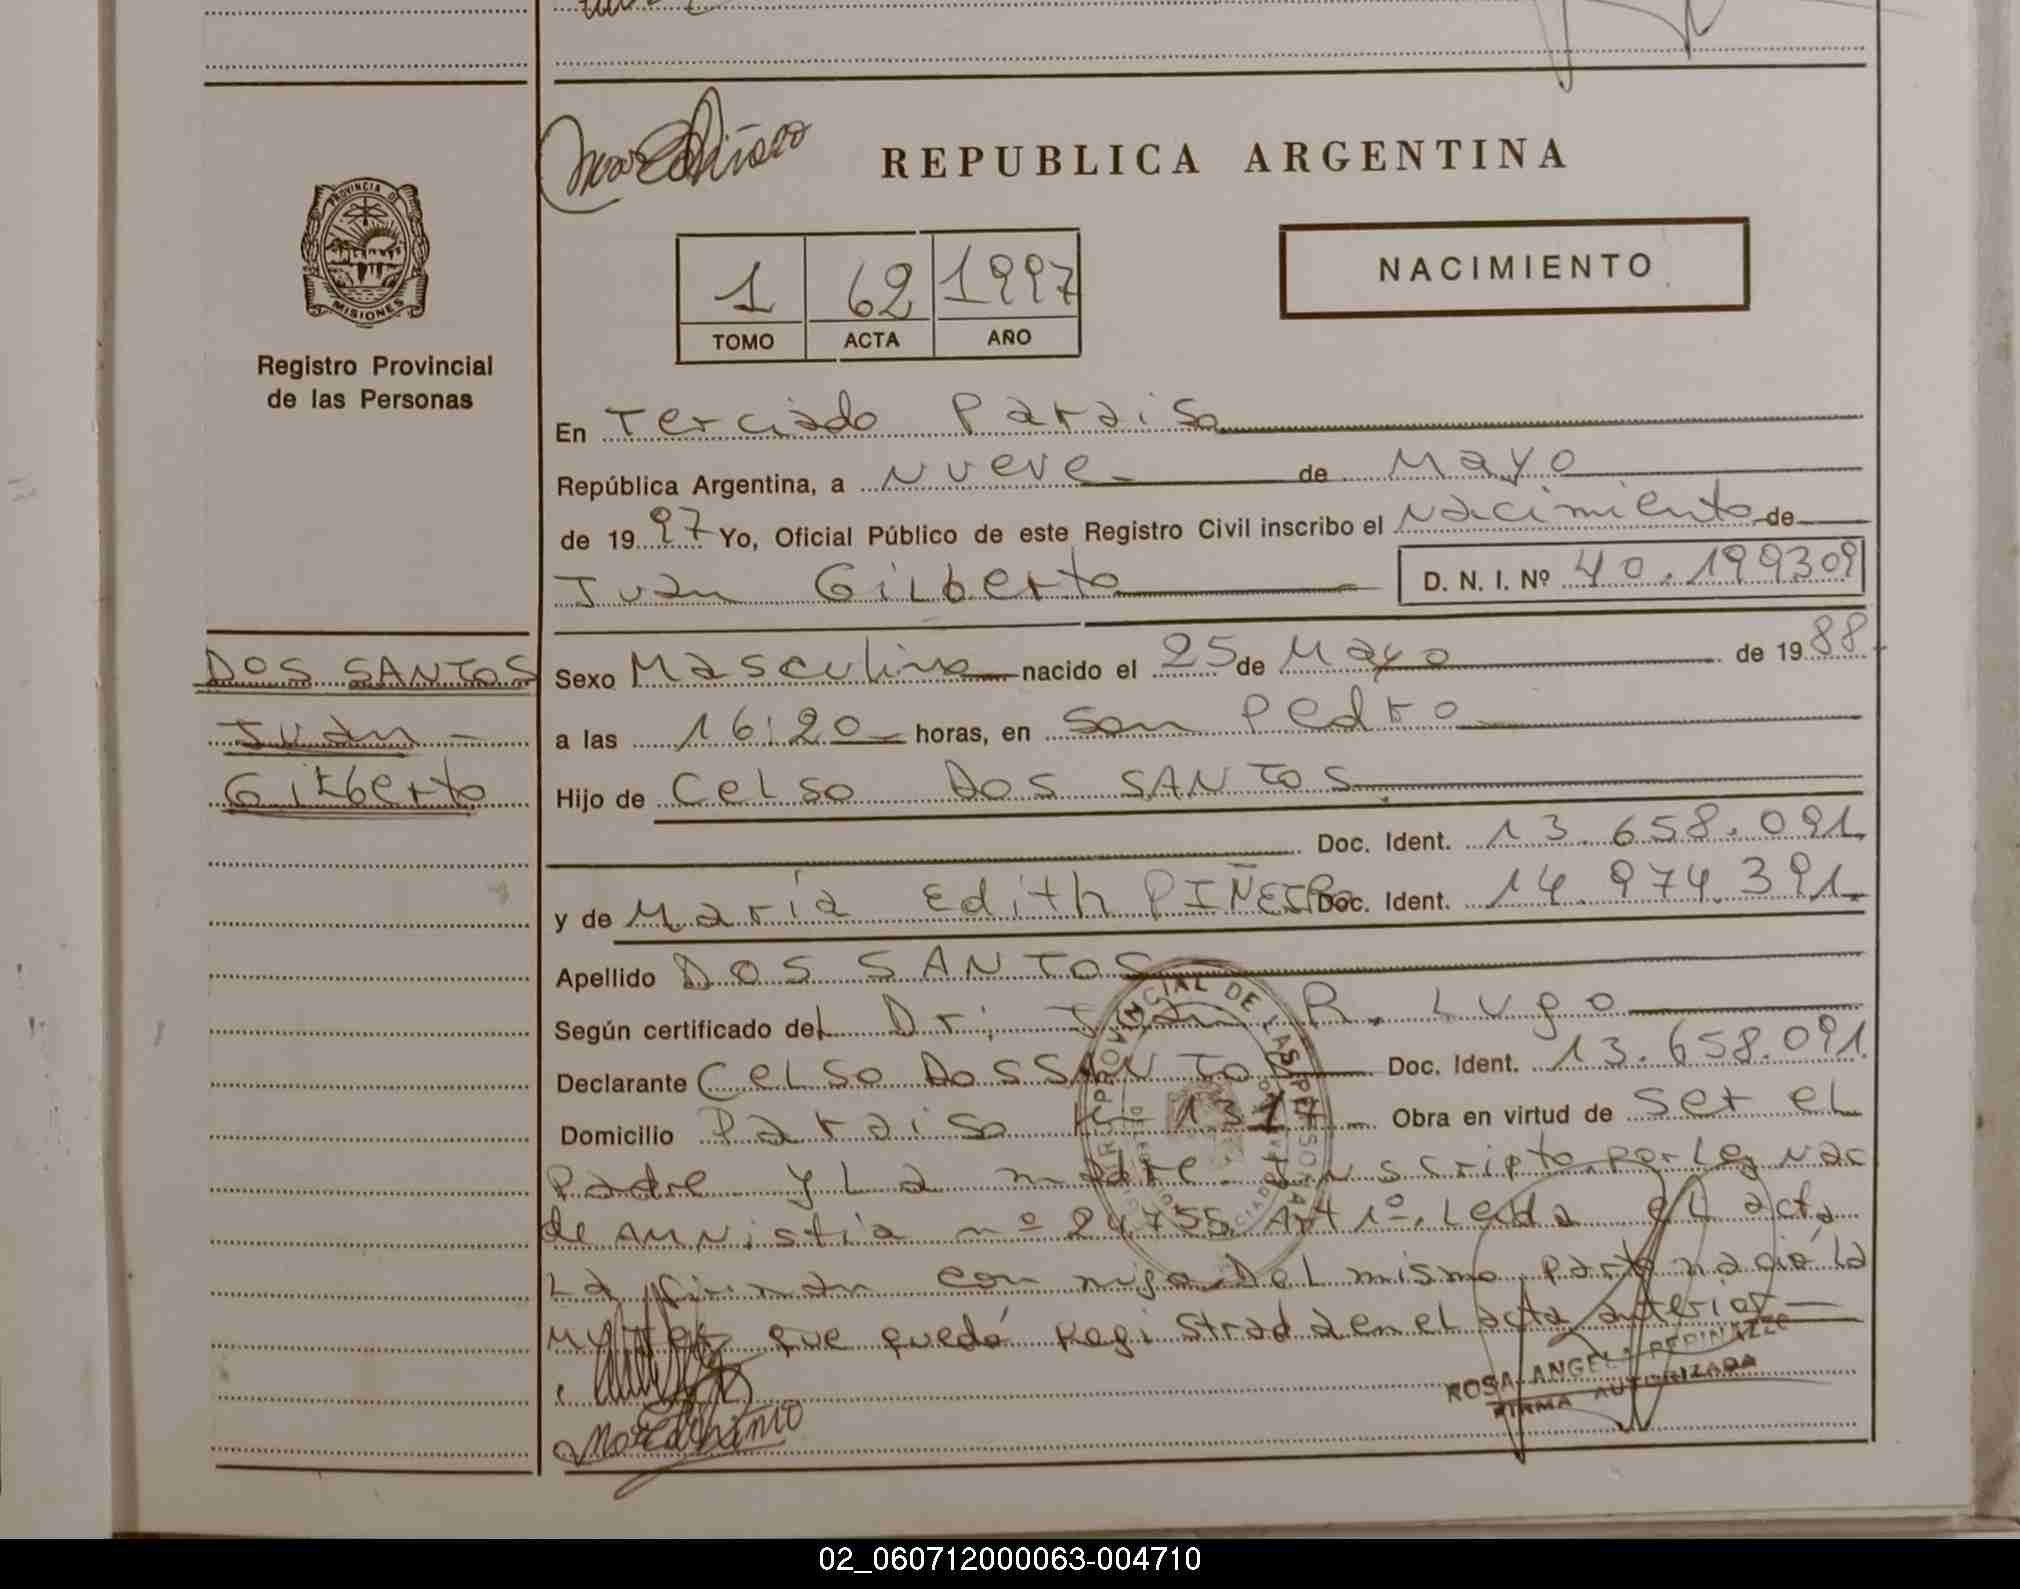 REPUBLICA ARGENTINA
PROVINCIA DE
MISIONES
Registro Provincial
de las Personas
1 62 1997
TOMO ACTA AÑO
NACIMIENTO
En Terciado Paraiso
República Argentina, a Nueve de Mayo
de 1997 Yo, Oficial Público de este Registro Civil inscribo el Nacimiento de
Juan Gilberto D. N. I. Nº 40.199309
DOS SANTOS
Juan -
Gilberto
Sexo Masculino nacido el 25 de Mayo de 1988
a las 16:20 horas, en San Pedro
Hijo de Celso Dos SANTOS
Doc. Ident. 13.658.091
y de María Edith PIÑEIRO Doc. Ident. 14.974.391
Apellido DOS SANTOS
Según certificado del Dr. Juan R. Lugo
Declarante Celso Dos SANTOS Doc. Ident. 13.658.091
Domicilio Paraiso Obra en virtud de ser el
Padre y La madre. Inscripto por Ley Nac
de Amnistia nº 24.755 Art 1º. Leida el acta
La firman conmigo. Del mismo parto nació la
que quedó Registrada en el acta anterior
ROSA ANGELA
FIRMA AUTORIZADA
02_060712000063-004710